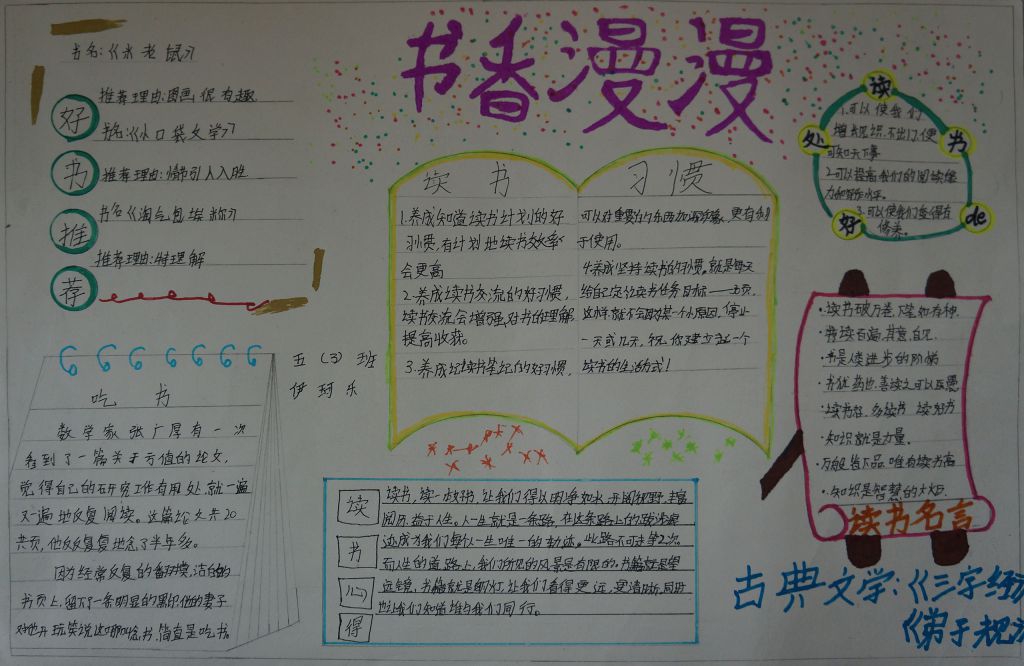 书香漫漫
书名:《水老鼠》
推荐理由:图画很有趣
书名:《小口袋文学》
推荐理由:情节引人入胜
书名《淘气包
推荐理由:特理解
好
书
推
荐
五(3)班
伊珂乐
吃书
数学家张广厚有一次
看到了一篇关于亏值的论文,
觉得自己的研究工作有用处,就一遍
又一遍地反复阅读。这篇论文共20
共页,他反反复复地念了半年多。
因为经常反复的翻摸,洁白的
书页上,留下了一条明显的黑印,他的妻子
对他开玩笑说,这哪叫念书,简直是吃书。
读书
1.养成知道读书计划的好
习惯,有计划地读书效率
会更高
2.养成读书交流的好习惯,
读书交流会增强对书的理解
提高收获。
3.养成记读书笔记的好习惯,
习惯
可以对重要的东西加深印象,更有利
于使用。
4.养成坚持读书的习惯。就是每天
给自己定读书任务目标——页,
这样就不会因为某一个小原因,停止
一天或几天,祝你建立起一个
读书的生活方式!
读
书
心
得
读书,读一本好书,让我们得以明净如水,开阔视野,丰富
阅历,益于人生。人一生就是一条路,在这条路上的
迹成为我们每个人一生唯一的轨迹。此路不可走第2次
而人生的道路上,我们所见的风景是有限的。书籍就是望
远镜,书籍就是明灯,让我们看得更远,更清晰,同时
也让我们知道谁与我们同行。
读
书
de
好
处
1.可以使我们
增长见识,不出门,便
可知天下事。
2.可以提高我们的阅读能
力和写作水平。
3.可以使我们变得有
修养。
·读书破万卷,下笔如有神.
·书读百遍,其意自见.
·书是人类进步的阶梯
·书犹药也,善读之可以医愚
·读书好,多读书,读好书
·知识就是力量.
万般皆下品,唯有读书高
·知识是智慧的火炬.
读书名言
古典文学:《三字经》
《弟子规》